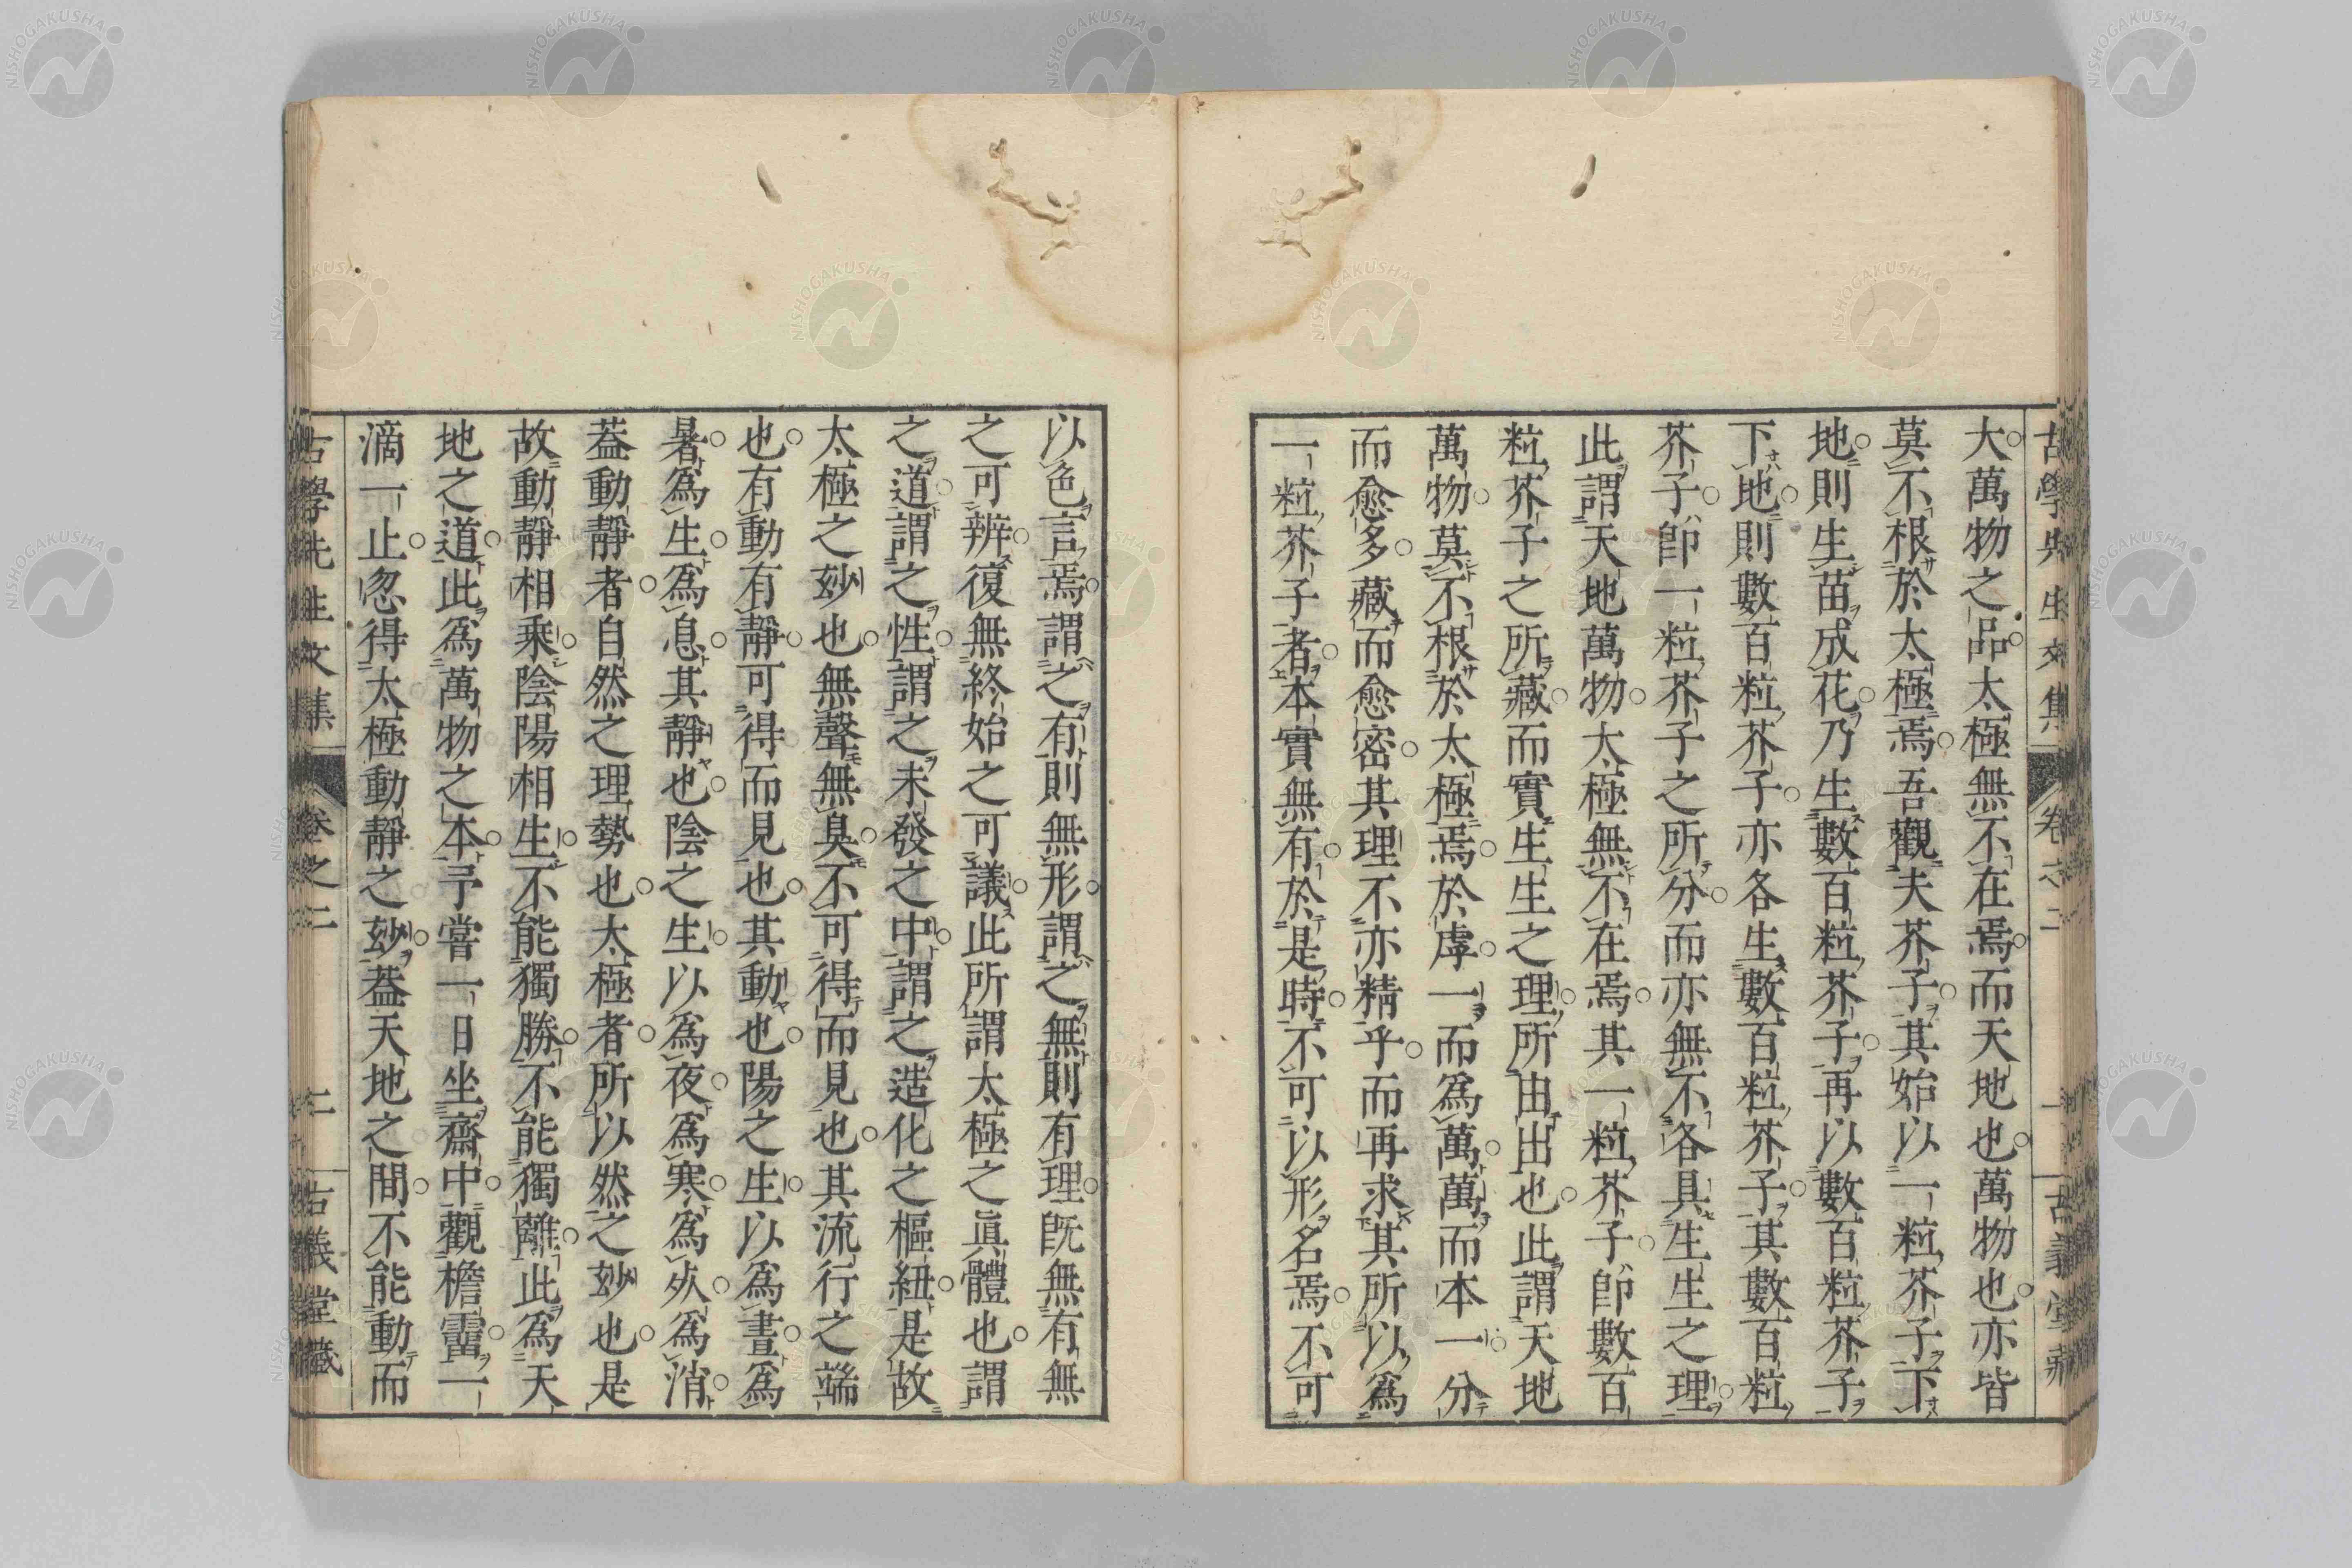 古學先生文集 卷之二 一 古義堂藏
大萬物之品太極無不在焉而天地也萬物也亦皆
莫不根於太極焉吾觀夫芥子其始以一粒芥子下
地則生苗成花乃生數百粒芥子再以數百粒芥子
下地則數百粒芥子亦各生數百粒芥子其數百粒
芥子卽一粒芥子之所分而亦無不各具生生之理
此謂天地萬物太極無不在焉其一粒芥子卽數百
粒芥子之所藏而實生生之理所由出也此謂天地
萬物莫不根於太極焉於虖一而爲萬萬而本一分
而愈多藏而愈密其理不亦精乎而再求其所以爲
一粒芥子者本實無有於是時不可以形名焉不可
以色言焉謂之有則無形謂之無則有理旣無有無
之可辨復無終始之可議此所謂太極之眞體也謂
之道謂之性謂之未發之中謂之造化之樞紐是故
太極之玅也無聲無臭不可得而見也其流行之端
也有動有靜可得而見也其動也陽之生以爲晝爲
暑爲生爲息其靜也陰之生以爲夜爲寒爲㱙爲消
葢動靜者自然之理勢也太極者所以然之玅也是
故動靜相乘陰陽相生不能獨勝不能獨離此爲天
地之道此爲萬物之本予嘗一日坐齋中觀檐霤一
滴一止忽得太極動靜之玅葢天地之間不能動而
古學先生文集 卷之二 二 古義堂藏
NISHOGAKUSHA